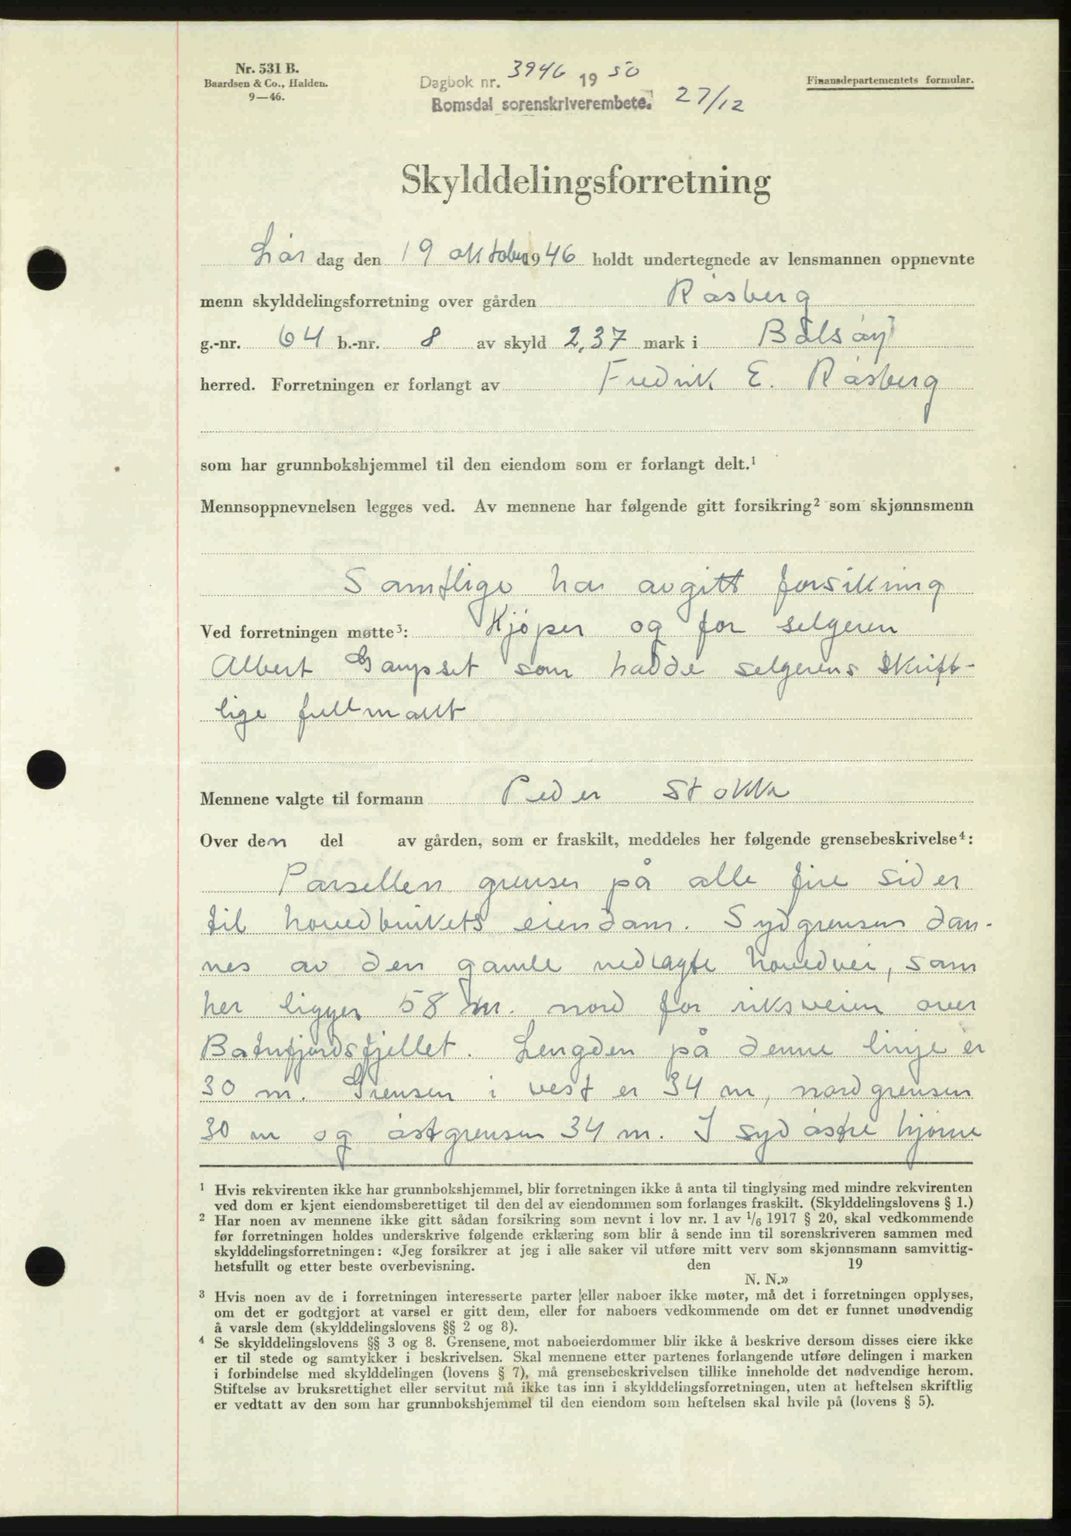 Nr. 531 B.
Baardsen & Co., Halden.
9—46.
Dagbok nr. 3946 1950
Romsdal sorenskriverembete. 27/12
Finansdepartementets formular.
Skylddelingsforretning
Lør dag den 19 oktober 1946 holdt undertegnede av lensmannen oppnevnte
menn skylddelingsforretning over gården Råsberg
g.-nr. 64 b.-nr. 8 av skyld 2,37 mark i Bolsøy
herred. Forretningen er forlangt av Fredrik E. Råsberg
som har grunnbokshjemmel til den eiendom som er forlangt delt.¹
Mennsoppnevnelsen legges ved. Av mennene har følgende gitt forsikring² som skjønnsmenn
Samtlige har avgitt forsikring
Ved forretningen møtte³: Kjøper og for selgeren
Albert Gaupset som hadde selgerens skrift-
lige fullmakt
Mennene valgte til formann Peder Stokke
Over den del av gården, som er fraskilt, meddeles her følgende grensebeskrivelse⁴:
Parsellen grenser på alle fire sider
til hovedbrukets eiendom. Sydgrensen dan-
nes av den gamle nedlagte hovedvei, som
her ligger 58 m. nord for riksveien over
Batnfjordsfjellet. Lengden på denne linje er
30 m. Grensen i vest er 34 m, nordgrensen
30 m og østgrensen 34 m. I sydøstre hjørne
¹ Hvis rekvirenten ikke har grunnbokshjemmel, blir forretningen ikke å anta til tinglysing med mindre rekvirenten
ved dom er kjent eiendomsberettiget til den del av eiendommen som forlanges fraskilt. (Skylddelingslovens § 1.)
² Har noen av mennene ikke gitt sådan forsikring som nevnt i lov nr. 1 av 1/6 1917 § 20, skal vedkommende
før forretningen holdes underskrive følgende erklæring som blir å sende inn til sorenskriveren sammen med
skylddelingsforretningen: «Jeg forsikrer at jeg i alle saker vil utføre mitt verv som skjønnsmann samvittig-
hetsfullt og etter beste overbevisning. den 19
N. N.»
³ Hvis noen av de i forretningen interesserte parter eller naboer ikke møter, må det i forretningen opplyses,
om det er godtgjort at varsel er gitt dem, eller for naboers vedkommende om det er funnet unødvendig
å varsle dem (skylddelingslovens §§ 2 og 8).
⁴ Se skylddelingslovens §§ 3 og 8. Grensene mot naboeierdommer blir ikke å beskrive dersom disses eiere ikke
er til stede og samtykker i beskrivelsen. Skal mennene etter partenes forlangende utføre delingen i marken
i forbindelse med skylddelingen (lovens § 7), må grensebeskrivelsen tillike inneholde det nødvendige herom.
Stiftelse av bruksrettighet eller servitut må ikke tas inn i skylddelingsforretningen, uten at heftelsen skriftlig
er vedtatt av den som har grunnbokshjemmel til den eiendom som heftelsen skal hvile på (lovens § 5).